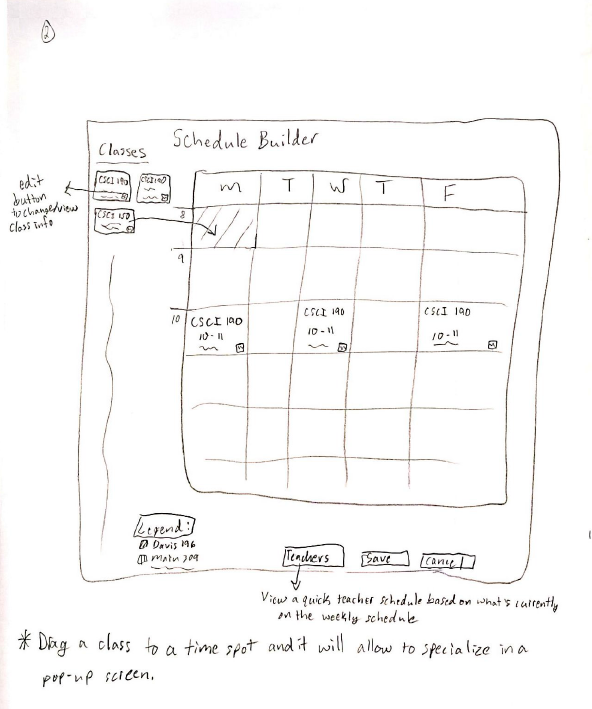 2
Schedule Builder
Classes
edit
button
to change/view
class info
CSCI 190
CSCI 190
CSCI 150
M T W T F
8
9
10
CSCI 190
10-11
CSCI 190
10-11
CSCI 190
10-11
Legend:
Davis 196
Main 209
Teachers
Save
Cancel
View a quick teacher schedule based on what's currently
on the weekly schedule
* Drag a class to a time spot and it will allow to specialize in a
pop-up screen.